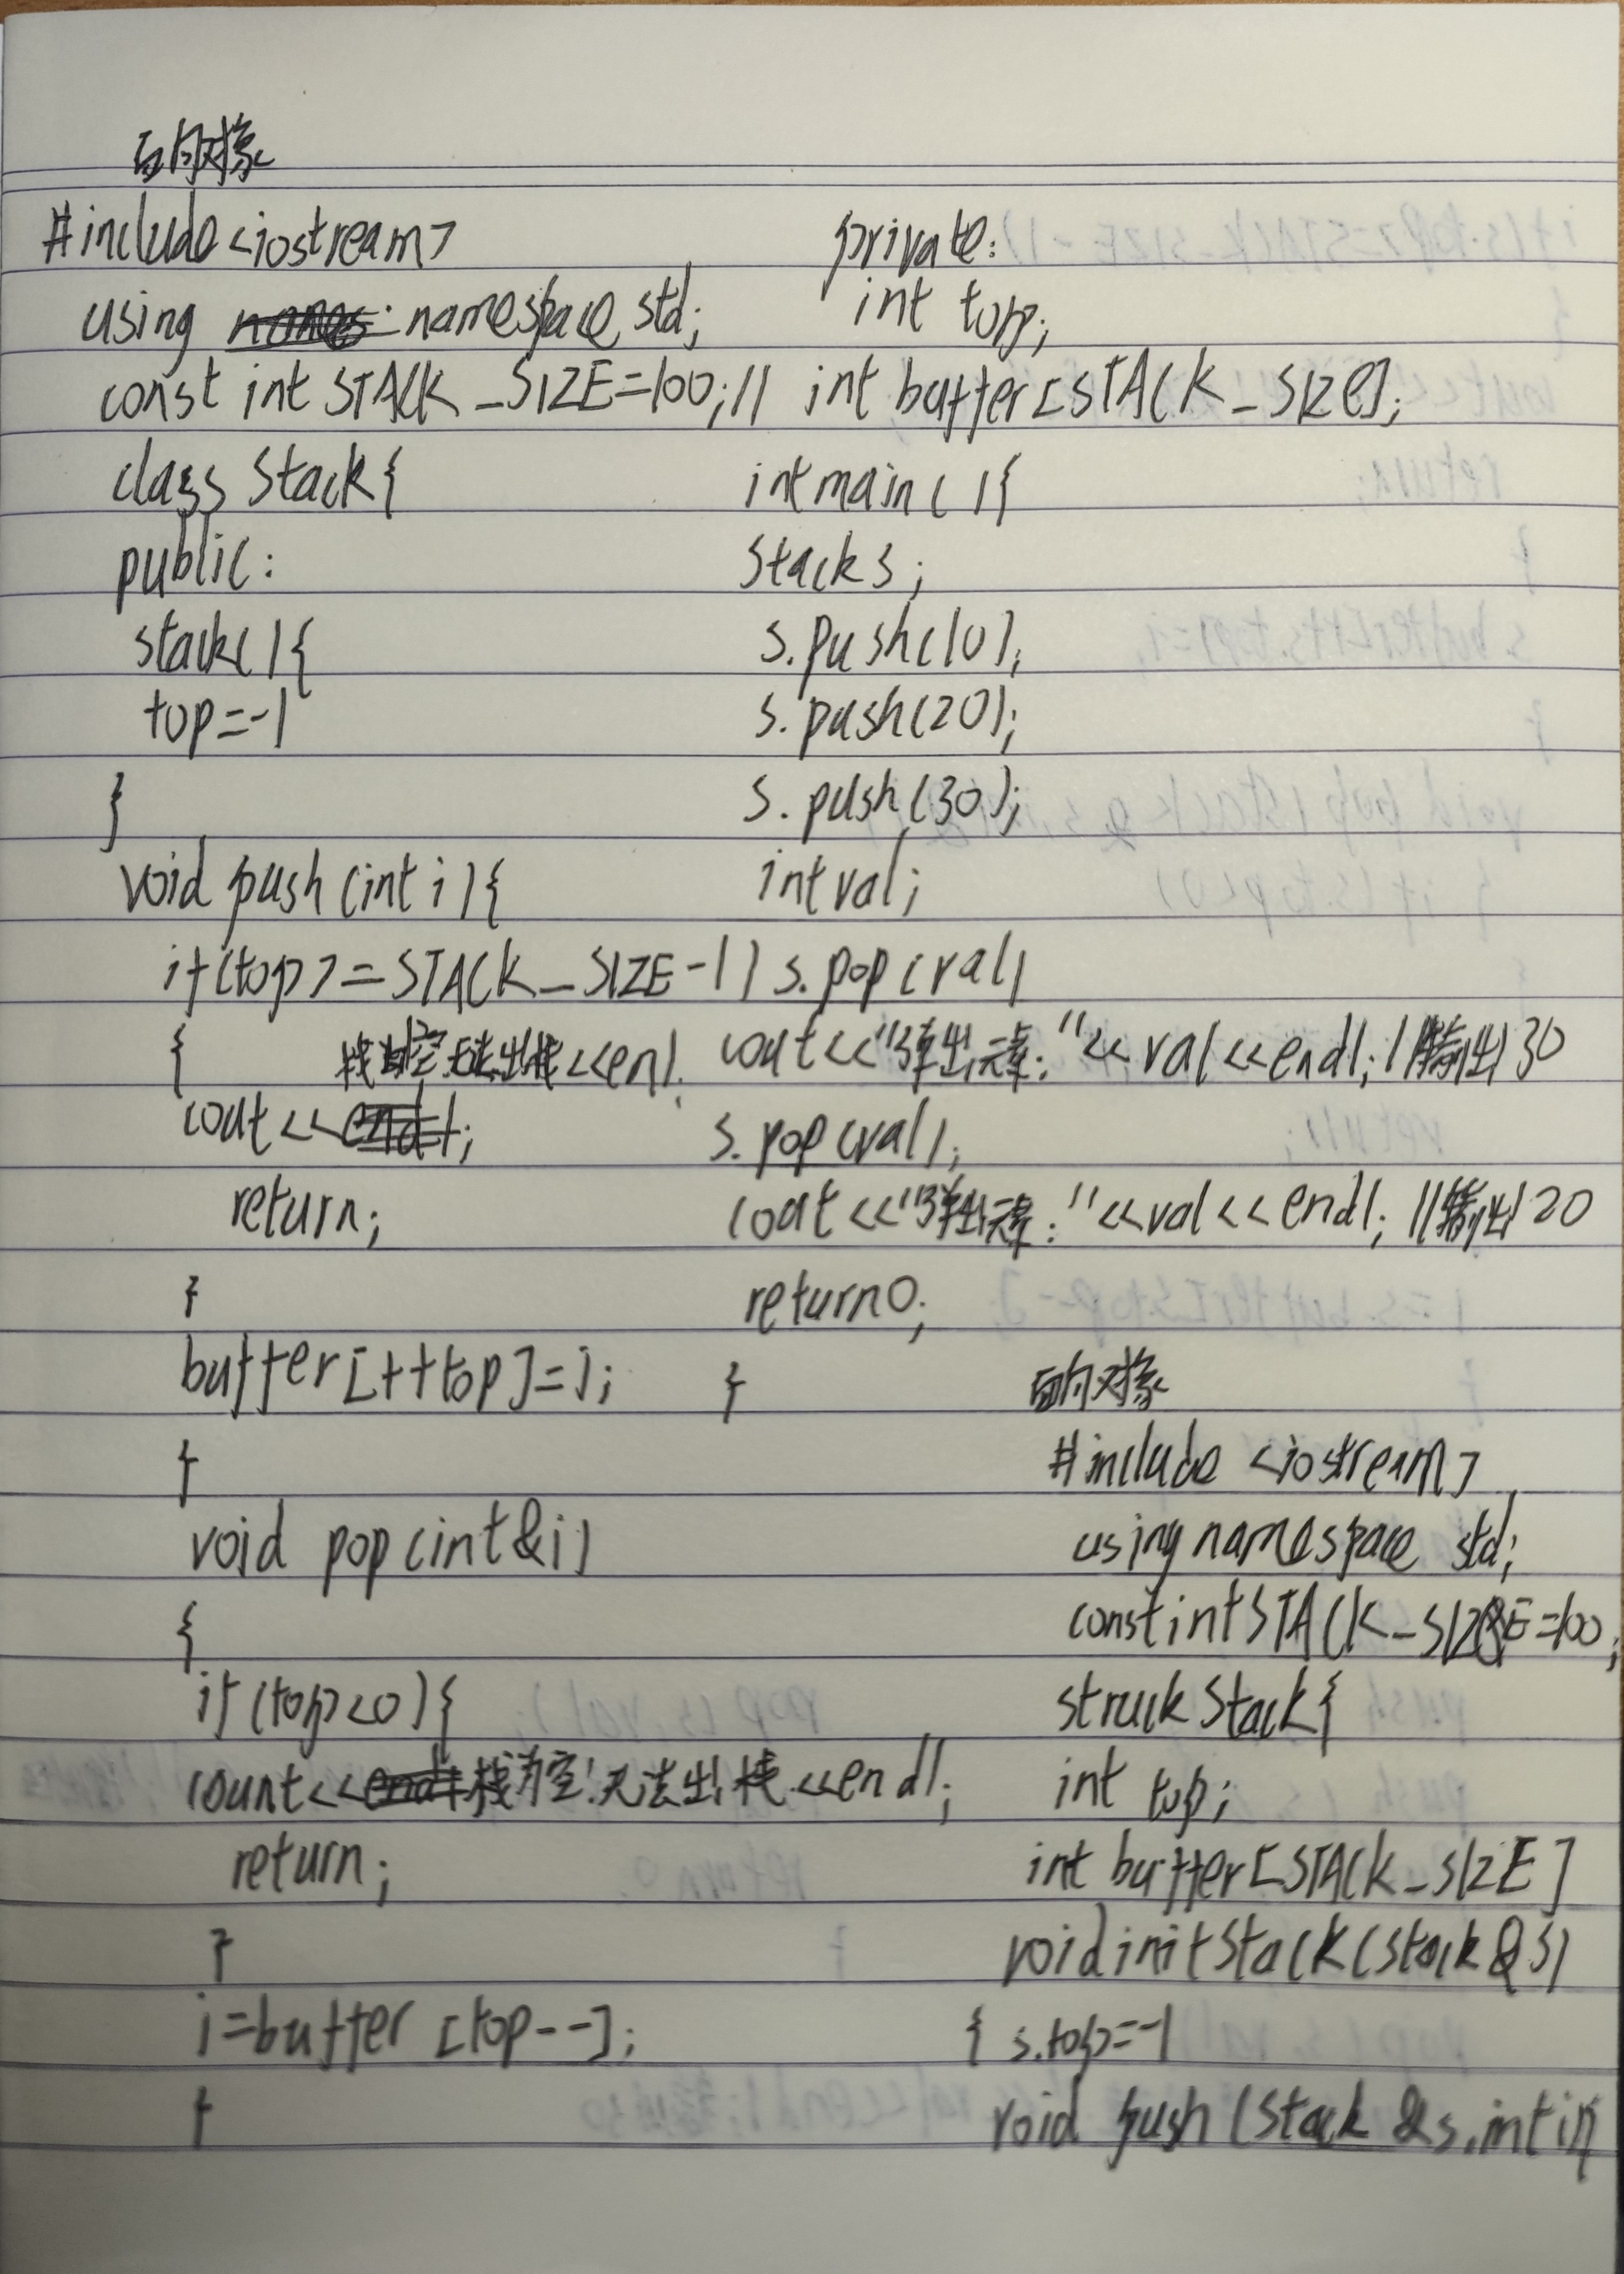 面向对象
#include<iostream>
using namespace std;
const int STACK_SIZE=100;//
class Stack{
public:
stack(){
top=-1
}
void push(int i){
if(top>=STACK_SIZE-1)
{
栈为空无法出栈<<enl.
cout<<
return;
}
buffer[++top]=i;
}
void pop(int&i)
{
if(top<0){
count<<栈为空!无法出栈<<endl;
return;
}
i=buffer[top--];
}
private:
int top;
int buffer[STACK_SIZe];
int main(){
Stack s;
s.push(10);
s.push(20);
s.push(30);
int val;
s.pop(val)
cout<<"弹出元素:"<<val<<endl;//输出30
s.pop(val);
cout<<"弹出元素:"<<val<<endl;//输出20
return 0;
}
面向对象
#include <iostream>
using namespace std;
const int STACK_SIZE=100;
struck Stack{
int top;
int buffer[STACK_SIZE]
void initStack(stack &s)
{ s.top=-1
void push(Stack &s,int i){